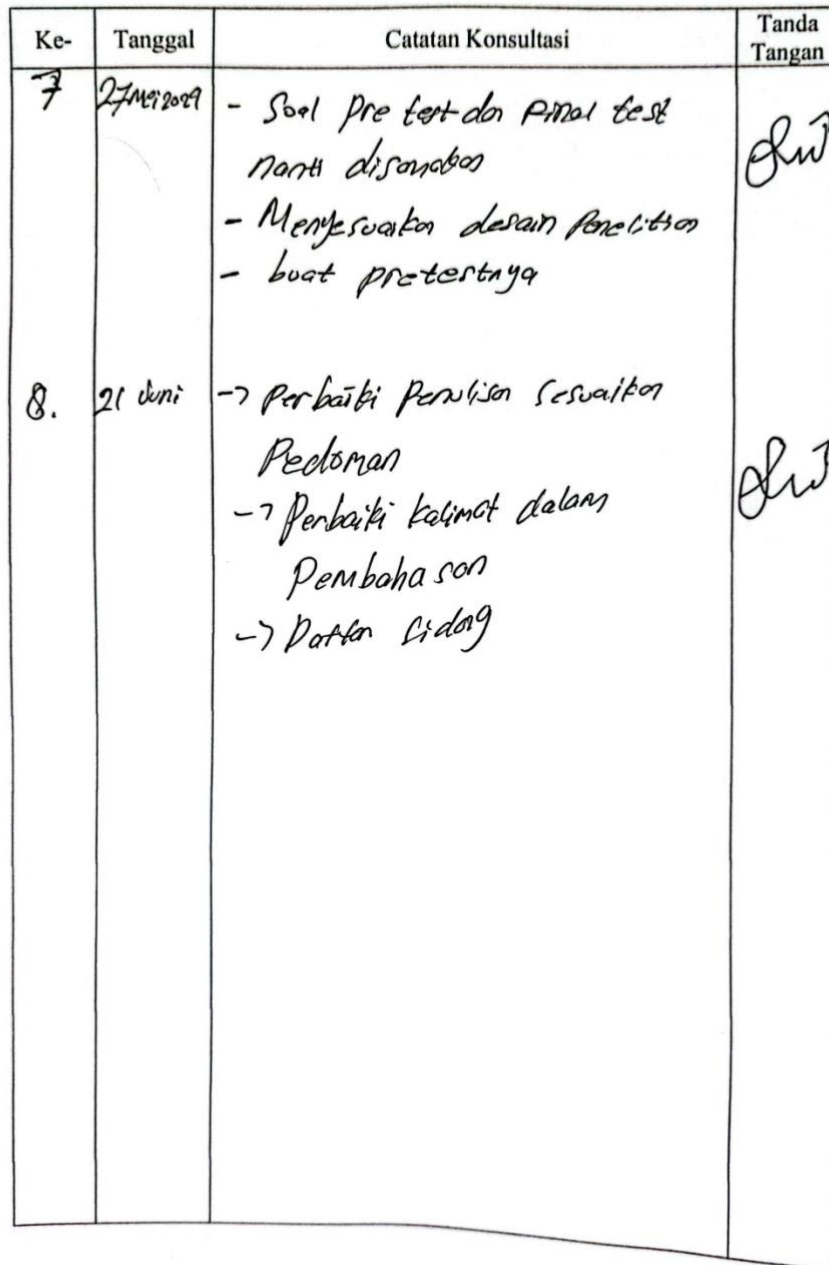 Ke- Tanggal Catatan Konsultasi Tanda Tangan
7 27 Mei 2024 - Soal pre test dan final test
nanti disamakan
- Menyesuaikan desain Penelitian
- buat pretestnya
8. 21 Juni -> Perbaiki Penulisan Sesuaikan
Pedoman
-> Perbaiki kalimat dalam
Pembahasan
-> Daftar Sidang